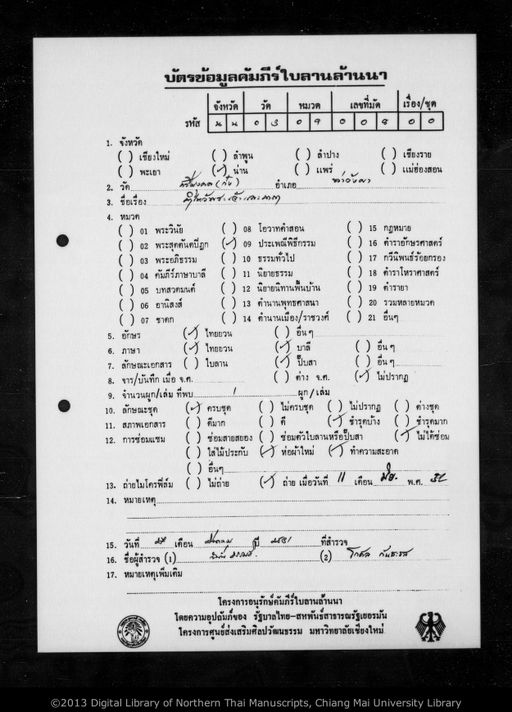 บัตรข้อมูลคัมภีร์ใบลานล้านนา
จังหวัด วัด หมวด เลขที่มัด เรื่อง/ชุด
รหัส น น ๐ ๓ ๐ ๙ ๐ ๐ ๘ ๐ ๐
1. จังหวัด
( ) เชียงใหม่ ( ) ลำพูน ( ) ลำปาง ( ) เชียงราย
( ) พะเยา (✓) น่าน ( ) แพร่ ( ) แม่ฮ่องสอน
2. วัด อำเภอ ท่าวังผา
3. ชื่อเรื่อง
4. หมวด
( ) 01 พระวินัย ( ) 08 โอวาทคำสอน ( ) 15 กฎหมาย
( ) 02 พระสุตตันตปิฎก (✓) 09 ประเพณีพิธีกรรม ( ) 16 ตำราอักษรศาสตร์
( ) 03 พระอภิธรรม ( ) 10 ธรรมทั่วไป ( ) 17 กวีนิพนธ์ร้อยกรอง
( ) 04 คัมภีร์ภาษาบาลี ( ) 11 นิยายธรรม ( ) 18 ตำราโหราศาสตร์
( ) 05 บทสวดมนต์ ( ) 12 นิยายนิทานพื้นบ้าน ( ) 19 ตำรายา
( ) 06 อานิสงส์ ( ) 13 ตำนานพุทธศาสนา ( ) 20 รวมหลายหมวด
( ) 07 ชาดก ( ) 14 ตำนานเมือง/ราชวงศ์ ( ) 21 อื่นๆ
5. อักษร (✓) ไทยยวน ( ) อื่นๆ
6. ภาษา (✓) ไทยยวน (✓) บาลี ( ) อื่นๆ
7. ลักษณะเอกสาร ( ) ใบลาน (✓) ปั๊บสา ( ) อื่นๆ
8. จาร/บันทึก เมื่อ จ.ศ. ( ) ต่าง จ.ศ. (✓) ไม่ปรากฏ
9. จำนวนผูก/เล่ม ที่พบ 1 ผูก/เล่ม
10. ลักษณะชุด (✓) ครบชุด ( ) ไม่ครบชุด ( ) ไม่ปรากฏ ( ) ต่างชุด
11. สภาพเอกสาร ( ) ดีมาก ( ) ดี (✓) ชำรุดบ้าง ( ) ชำรุดมาก
12. การซ่อมแซม ( ) ซ่อมสายสยอง ( ) ซ่อมตัวใบลานหรือปั๊บสา (✓) ไม่ได้ซ่อม
( ) ใส่ไม้ประกับ (✓) ห่อผ้าใหม่ (✓) ทำความสะอาด
( ) อื่นๆ
13. ถ่ายไมโครฟิล์ม ( ) ไม่ถ่าย (✓) ถ่าย เมื่อวันที่ 11 เดือน พ.ศ.
14. หมายเหตุ
15. วันที่ เดือน ปี ที่สำรวจ
16. ชื่อผู้สำรวจ (1) (2)
17. หมายเหตุเพิ่มเติม
โครงการอนุรักษ์คัมภีร์ใบลานล้านนา
โดยความอุปถัมภ์ของ รัฐบาลไทย-สหพันธ์สาธารณรัฐเยอรมัน
โครงการศูนย์ส่งเสริมศิลปวัฒนธรรม มหาวิทยาลัยเชียงใหม่
©2013 Digital Library of Northern Thai Manuscripts, Chiang Mai University Library